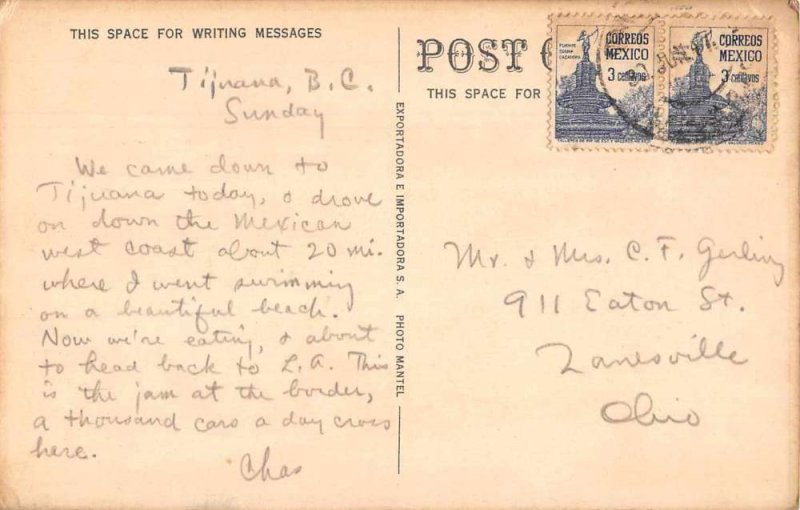 THIS SPACE FOR WRITING MESSAGES
Tijuana, B.C.
Sunday
We came down to
Tijuana today, & drove
on down the Mexican
west coast about 20 mi.
where I went swimming
on a beautiful beach.
Now we're eating, & about
to head back to L.A. This
is the jam at the border,
a thousand cars a day cross
here.
Chas
EXPORTADORA E IMPORTADORA S. A. PHOTO MANTEL
POST C
THIS SPACE FOR
CORREOS
MEXICO
3 centavos
CORREOS
MEXICO
3 centavos
Mr. & Mrs. C. F. Gerling
911 Eaton St.
Zanesville
Ohio